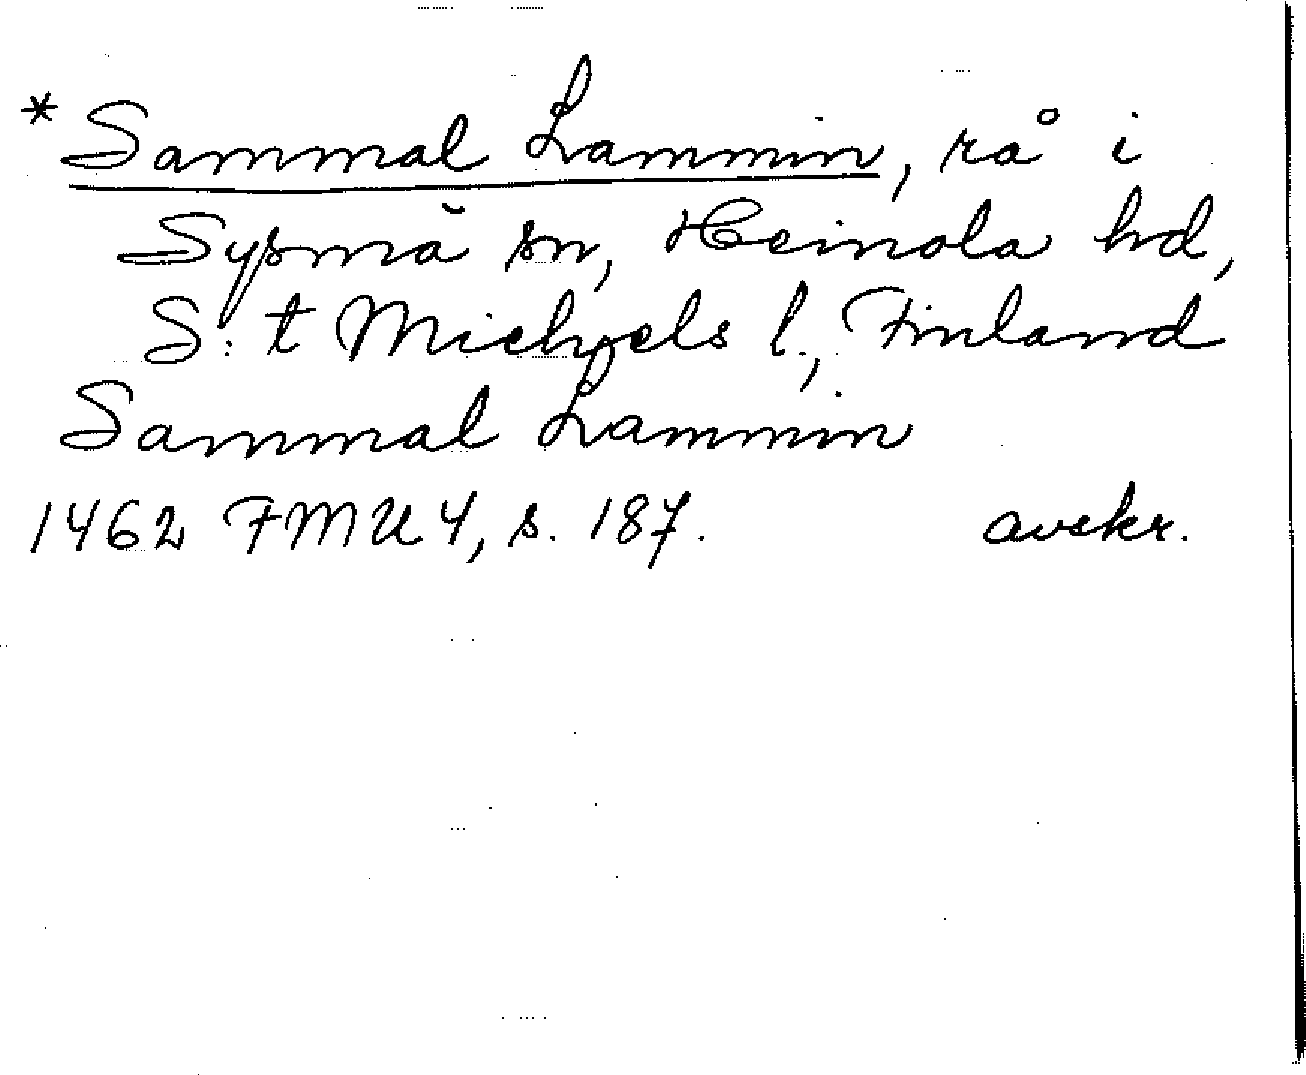 *Sammal Lammin, rå i
Sysmä sn, Heinola hd,
S:t Michels l., Finland
Sammal Lammin
1462 FMU 4, s. 187. avskr.